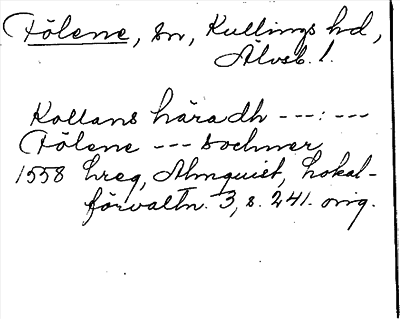 Fölene, sn, Kullings hd,
Älvsb. l.
Kollans häradh ---:---
Fölene --- sochner
1558 Lreg, Almquist, Lokal-
förvaltn. 3, s. 241. orig.